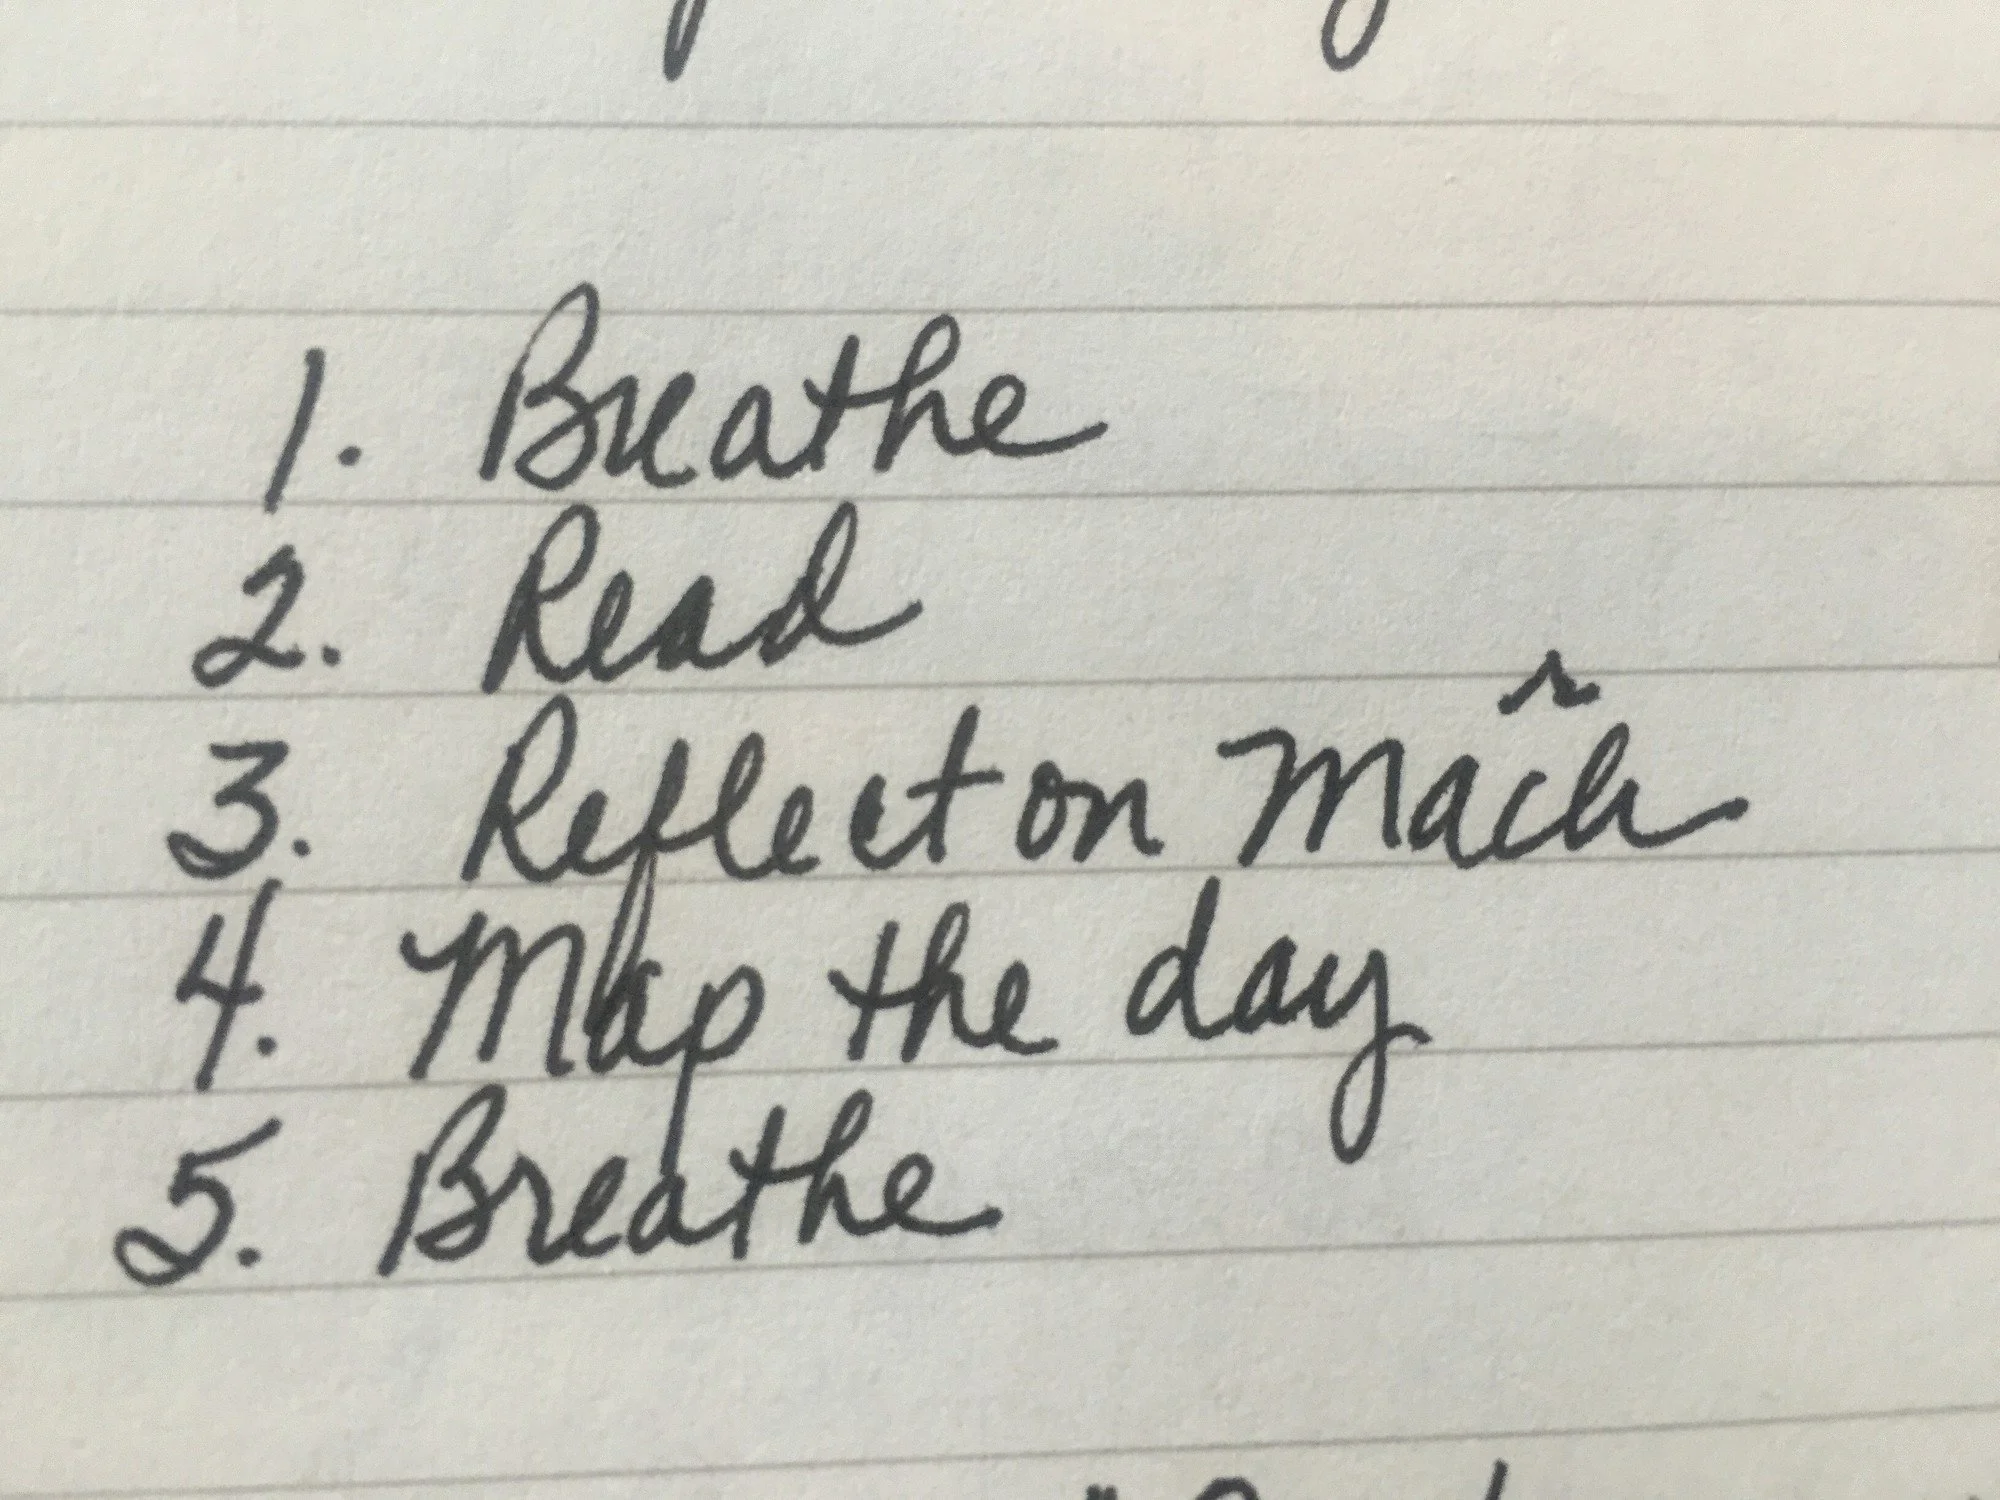 1. Breathe
2. Read
3. Reflect on
4. Map the day
5. Breathe